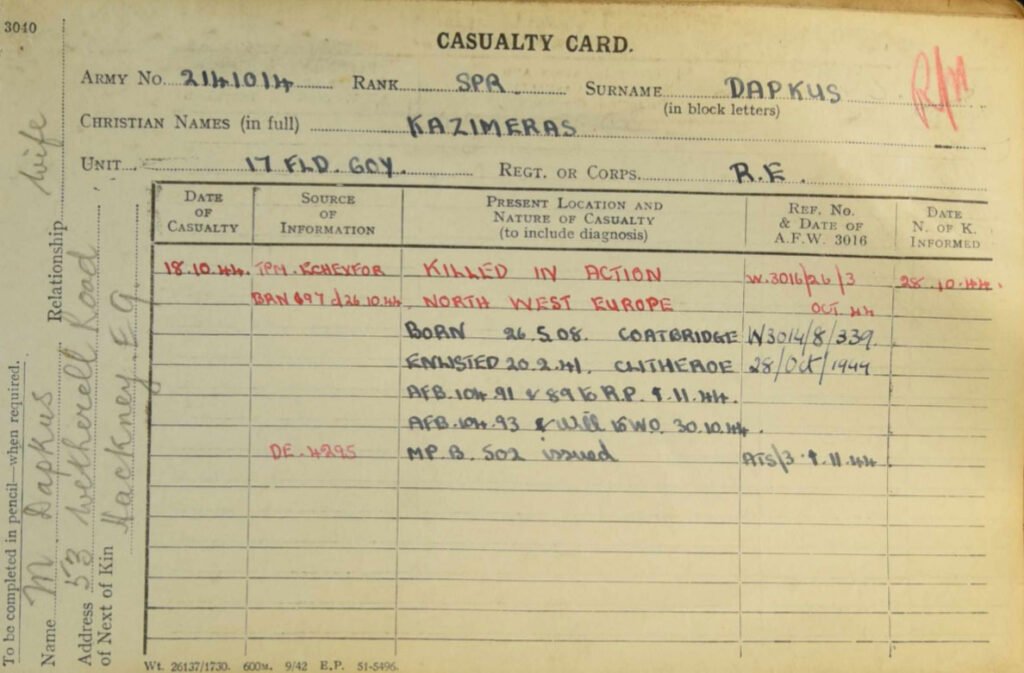 3040
CASUALTY CARD.
R/M
ARMY NO. 2141014 RANK SPR SURNAME DAPKUS
(in block letters)
CHRISTIAN NAMES (in full) KAZIMERAS
UNIT 17 FLD. COY. REGT. OR CORPS. R.E.
DATE OF CASUALTY
SOURCE OF INFORMATION
PRESENT LOCATION AND NATURE OF CASUALTY (to include diagnosis)
REF. NO. & DATE OF A.F.W. 3016
DATE N. OF K. INFORMED
18.10.44. KILLED IN ACTION W.3016/26/3 28.10.44.
d 26.10.44 NORTH WEST EUROPE OCT 44
BORN 26.5.08. COATBRIDGE W3014/8/339.
ENLISTED 20.2.41. CLITHEROE 28/Oct/1944
AFB.104.91 & 89 to R.P. 9.11.44.
AFB.104.93 & Will to WO. 30.10.44.
DE.4295 MP.B. 502 issued ATS/3. 9.11.44
Wt. 26137/1730. 600M. 9/42 E.P. 51-5496.
To be completed in pencil—when required.
Name M Dapkus Relationship wife
Address 53 Wetherell Road
of Next of Kin Hackney E9.